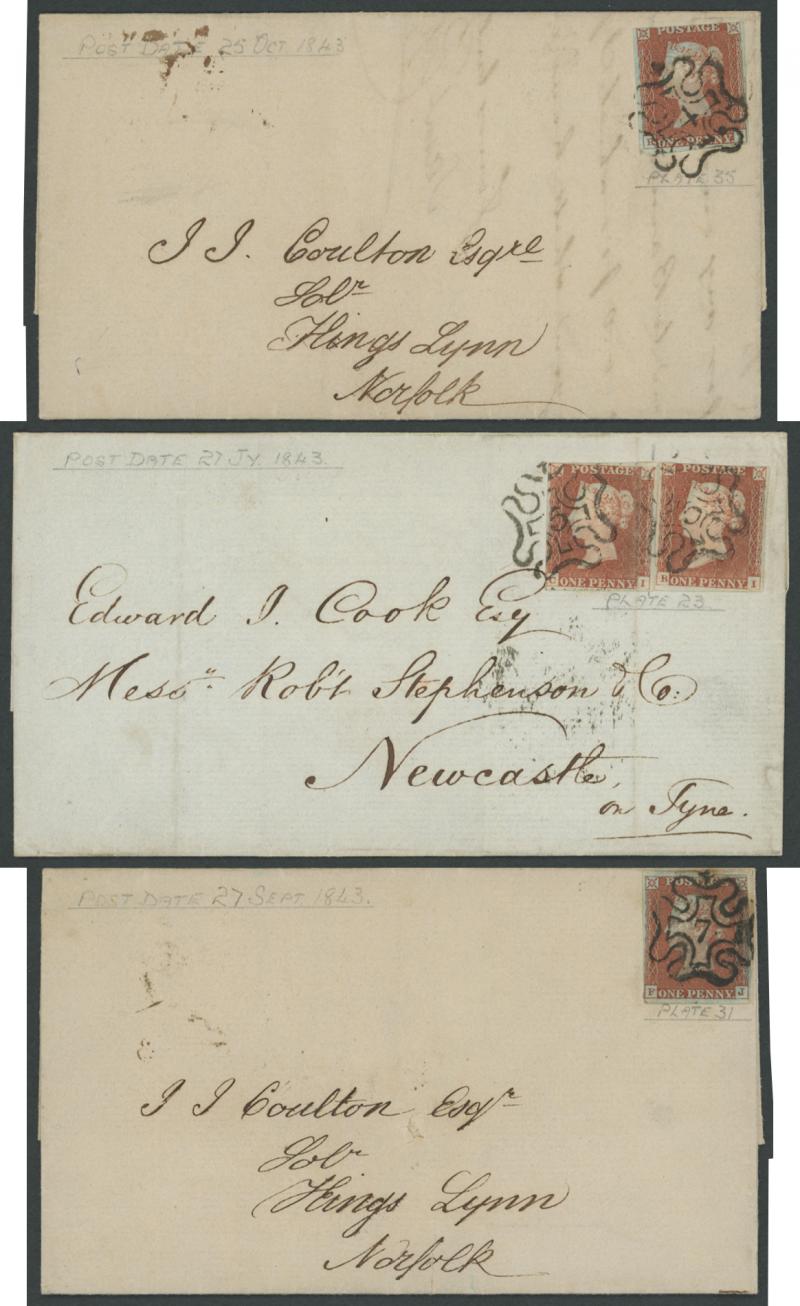 POST DATE 25 OCT 1843
POSTAGE
ONE PENNY
PLATE 35
J J. Coulton Esqre
Solr
Kings Lynn
Norfolk
POST DATE 27 JY. 1843.
POSTAGE
POSTAGE
ONE PENNY I
R ONE PENNY I
PLATE 23
Edward J. Cook Esq
Messrs Robt Stephenson & Co:
Newcastle,
on Tyne.
POST DATE 27 SEPT. 1843.
POSTAGE
7
F ONE PENNY J
PLATE 31
J J Coulton Esqr
Solr
Kings Lynn
Norfolk